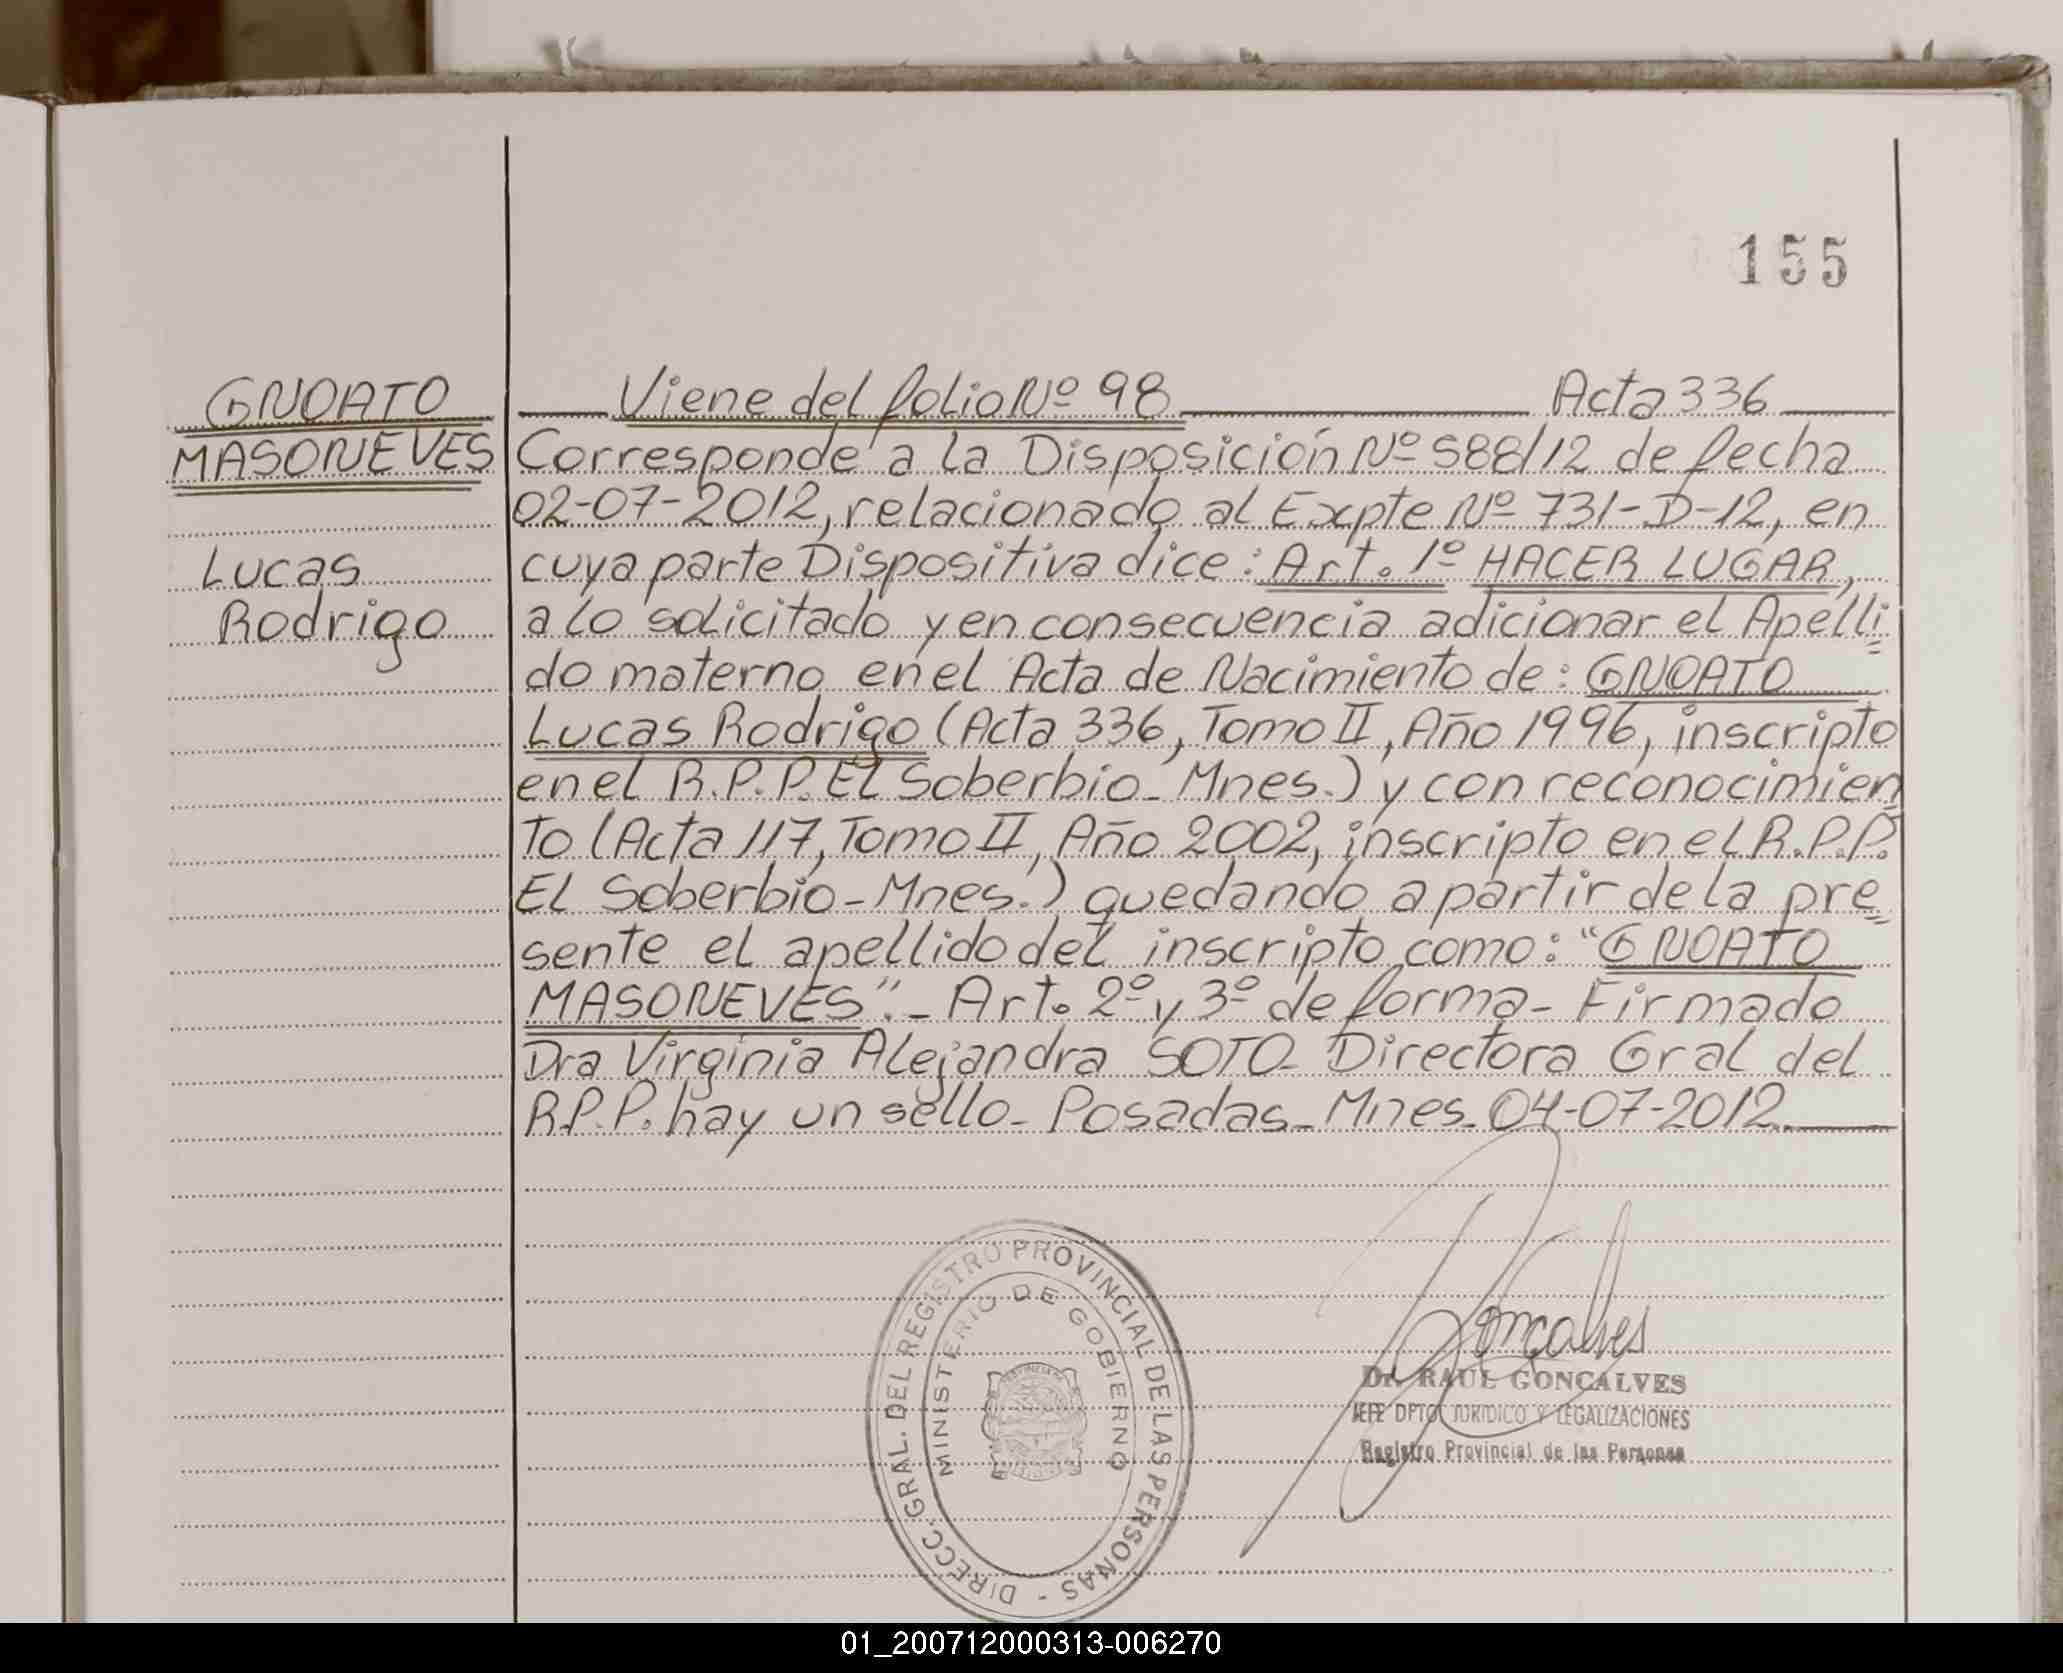 155
GNOATO
MASONEVES
Lucas
Rodrigo
Viene del folio Nº 98 Acta 336
Corresponde a la Disposición Nº 588/12 de fecha
02-07-2012, relacionado al Expte Nº 731-D-12, en
cuya parte Dispositiva dice: Art. 1º HACER LUGAR,
a lo solicitado y en consecuencia adicionar el Apelli=
do materno en el Acta de Nacimiento de: GNOATO
Lucas Rodrigo (Acta 336, Tomo II, Año 1996, inscripto
en el R.P.P. El Soberbio_ Mnes.) y con reconocimien=
to (Acta 117, Tomo II, Año 2002, inscripto en el R.P.P.
El Soberbio-Mnes.) quedando a partir de la pre=
sente el apellido del inscripto como: "GNOATO
MASONEVES"._ Art. 2º y 3º de forma- Firmado
Dra Virginia Alejandra SOTO- Directora Gral del
R.P.P. hay un sello_ Posadas_ Mnes_ 04-07-2012.
DIRECC. GRAL. DEL REGISTRO PROVINCIAL DE LAS PERSONAS -
MINISTERIO DE GOBIERNO
Goncalves
Dr. RAUL GONCALVES
JEFE DPTO JURIDICO Y LEGALIZACIONES
Registro Provincial de las Personas
01_200712000313-006270